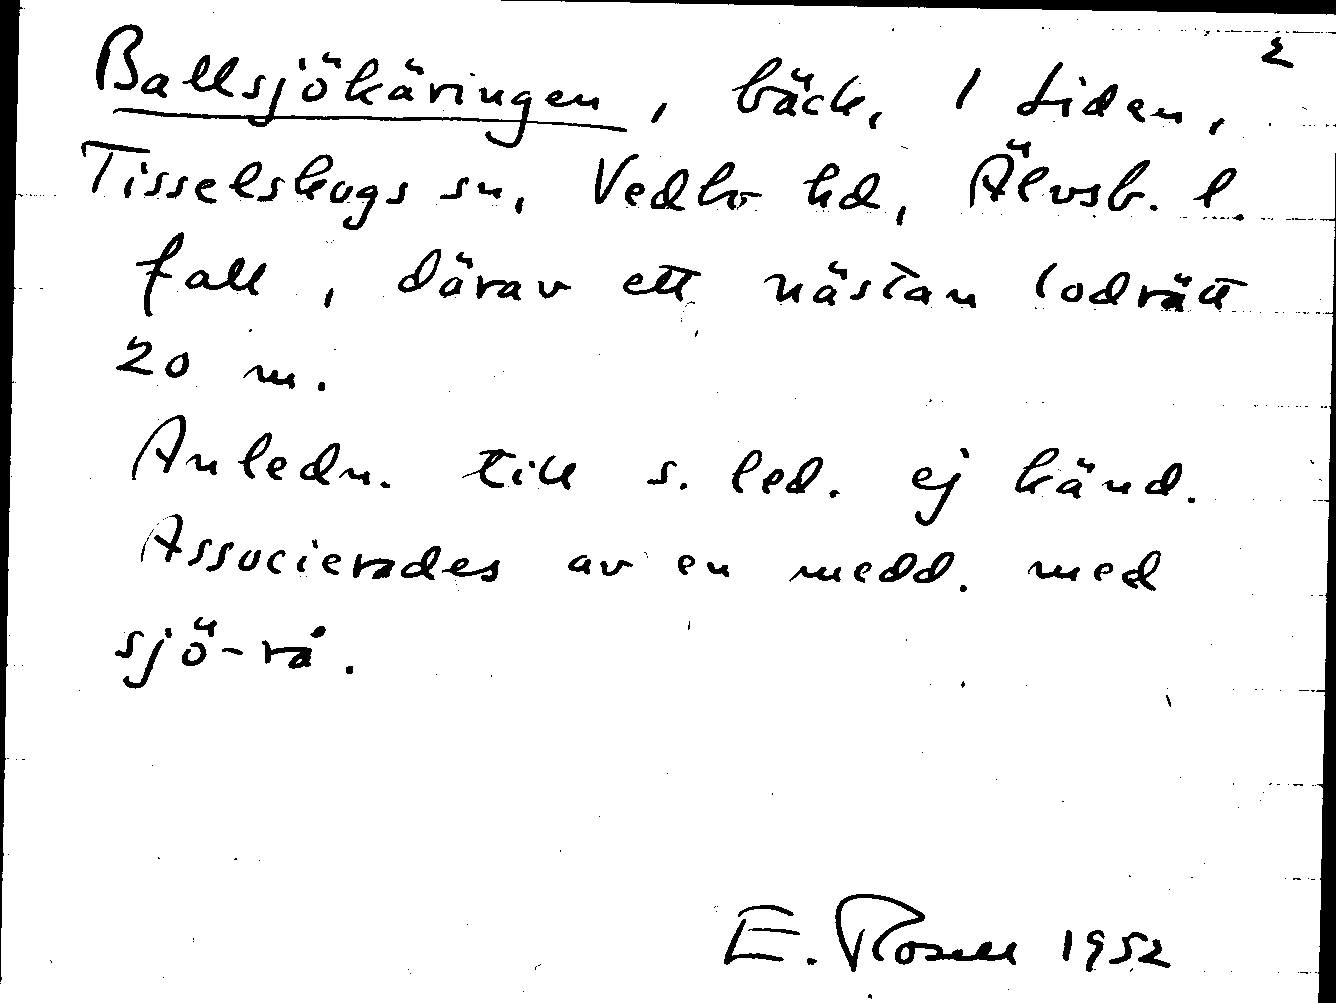 2
Ballsjökäringen, bäck, 1 Liden,
Tisselskogs sn, Vedbo hd, Älvsb. l.
fall, därav ett nästan lodrätt
20 m.
Anledn. till s. led. ej känd.
Associerades av en medd. med
sjö-rå.
E. Rosell 1952